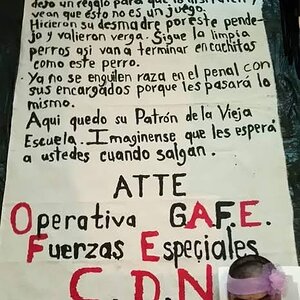 dejo un regalo para que lo disfruten y
vean que esto no es un juego.
Hicieron su desmadre por este pende-
jo y valieron verga. Sigue la limpia
perros asi van a terminar en cachitos
como este perro.
Ya no se enguilen raza en el penal con
sus encargados porque les pasará lo
mismo.
Aqui quedo su Patrón de la Vieja
Escuela. Imaginense que les espera
a ustedes cuando salgan.
ATTE
Operativa G.A.F.E.
Fuerzas Especiales
C.D.N